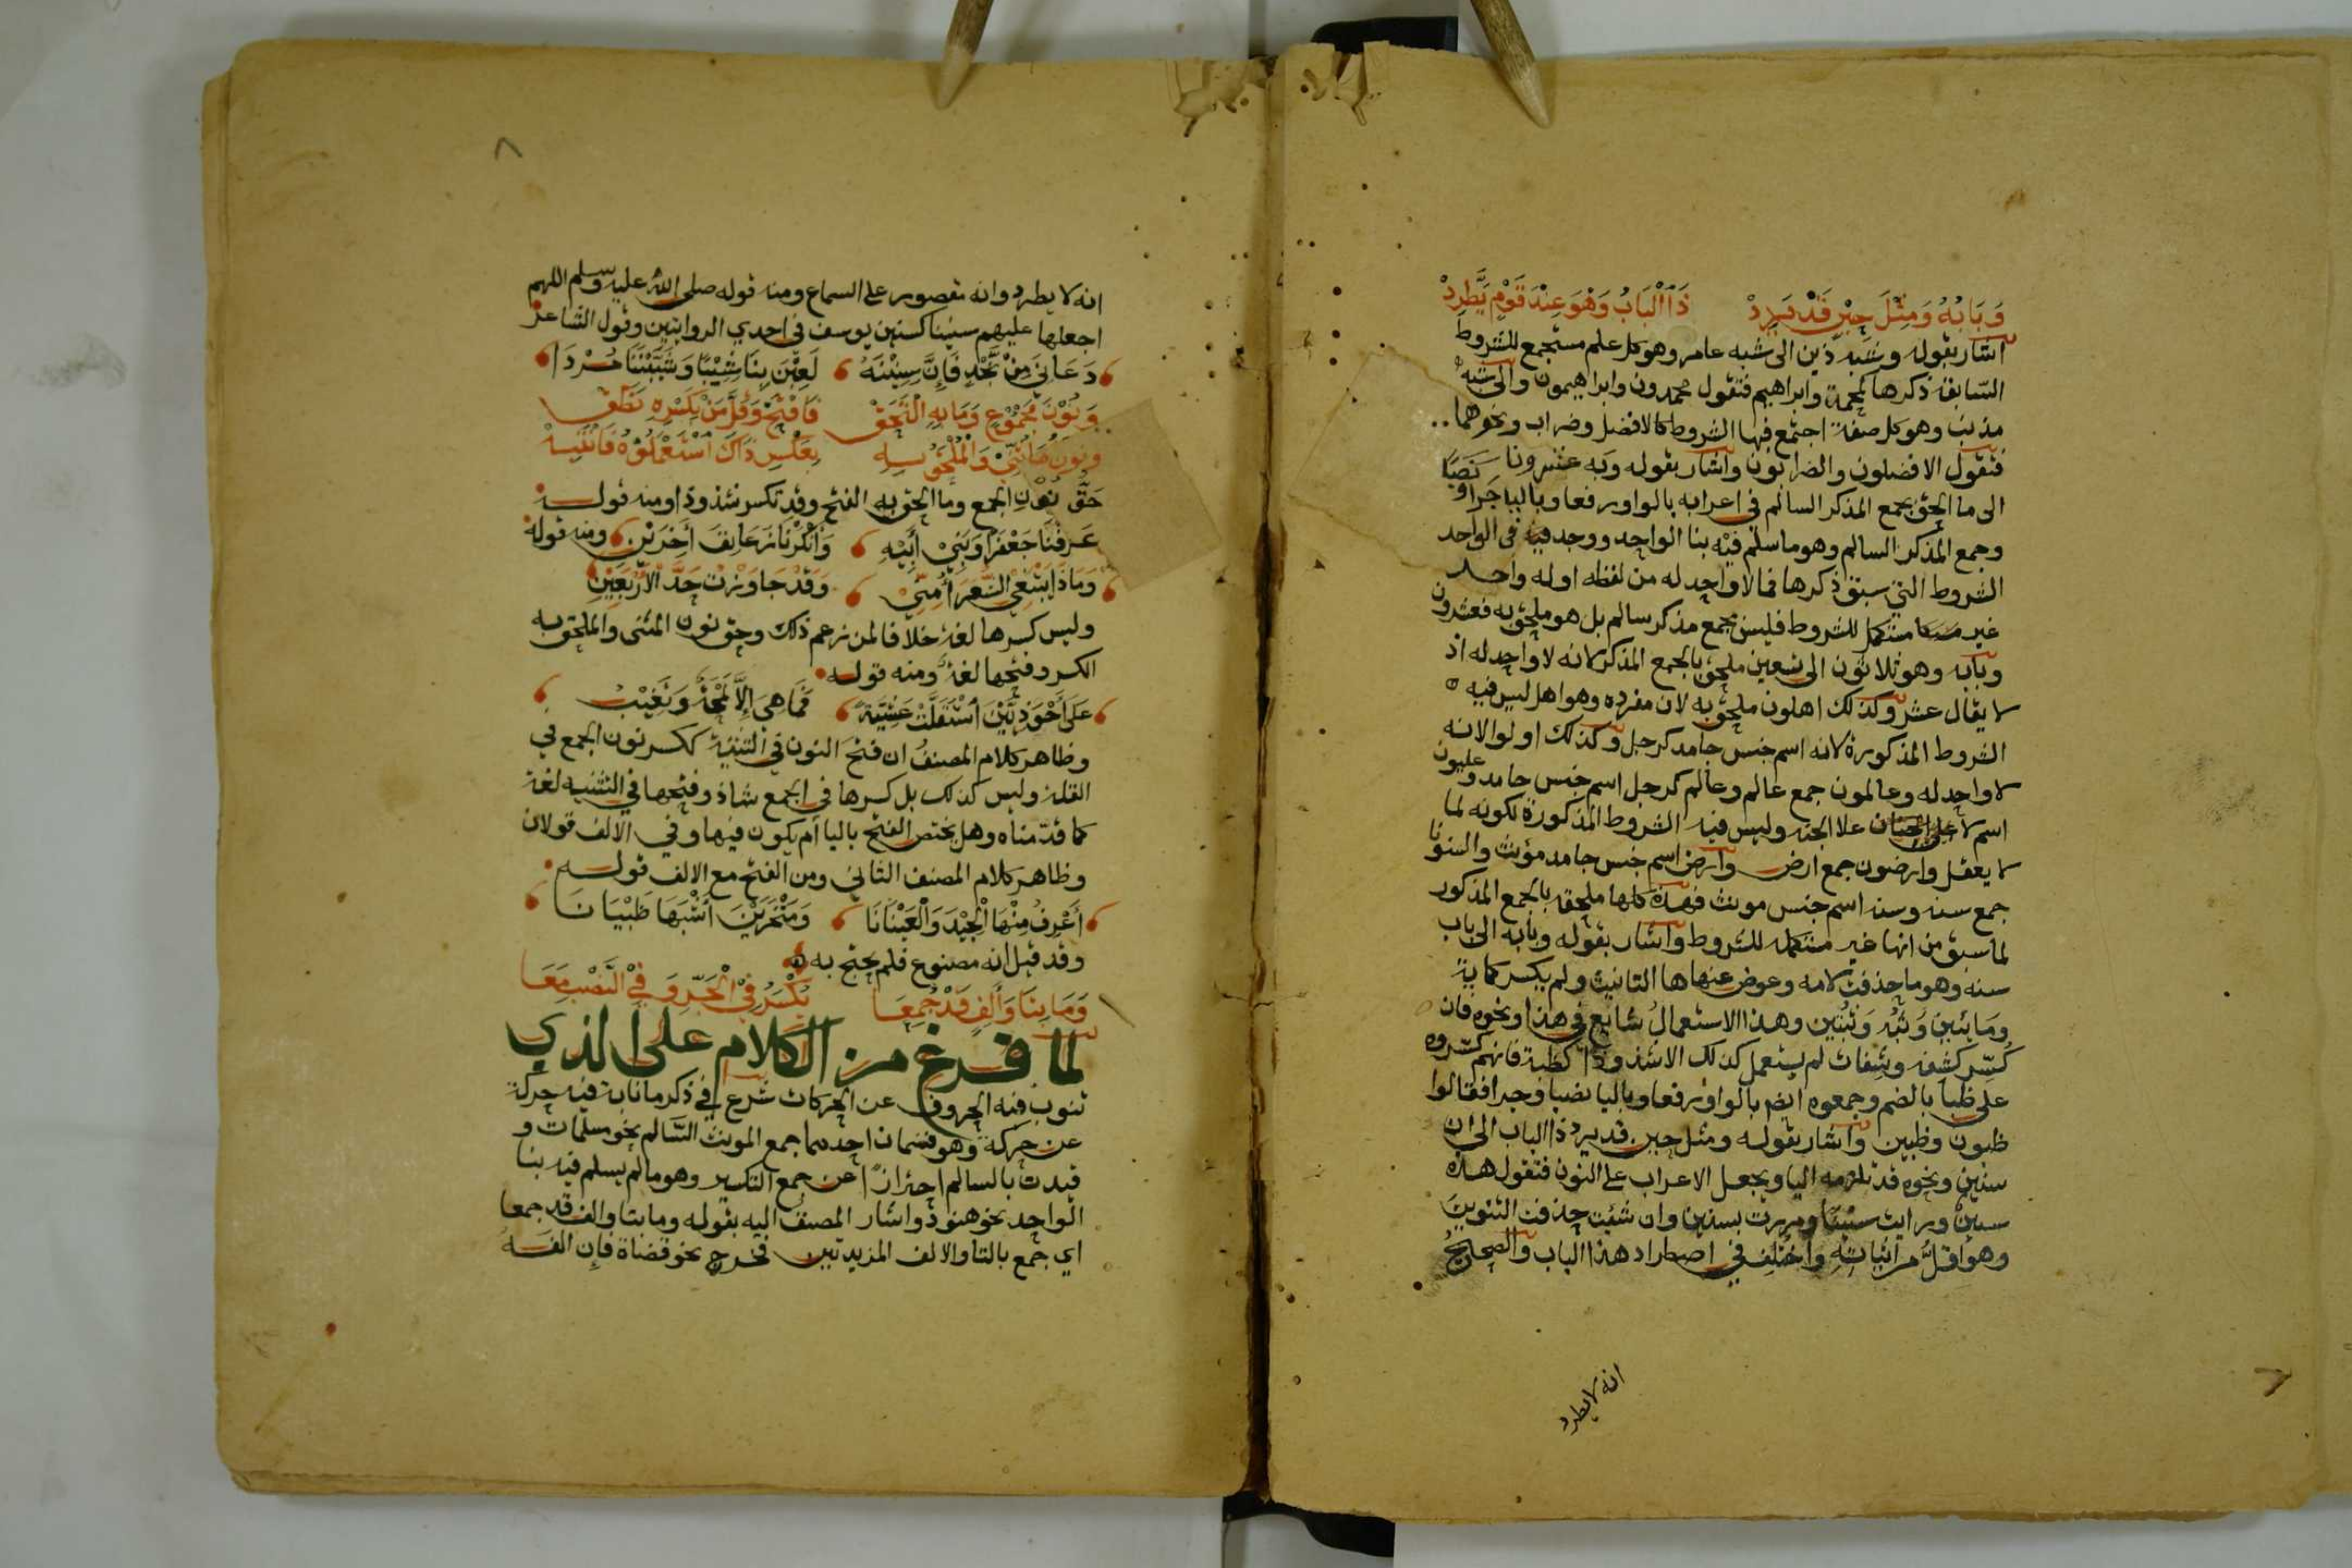 وَبَابُهُ وَمِثْلَ حِيْنٍ قَدْ يَرِدْ ذَا الْبَابُ وَهْوَ عِنْدَ قَوْمٍ يَطَّرِدْ
اشار بقوله وشبه ذين الى شبه عامر وهو كل علم مستجمع للشروط
السّابقة ذكرها كمحمد وابراهيم فتقول محمدون وابراهيمون والى شبه
مذنب وهو كل صفة اجتمع فيها الشروط كالافضل وضراب ونحوهما
فتقول الافضلون والضرابون واشار بقوله وبه عشرونا
الى ما الحق بجمع المذكر السالم في اعرابه بالواو رفعا وباليا جرا ونصبا
وجمع المذكر السالم وهو ما سلم فيه بنا الواحد ووجد فيه في الواحد
الشروط التي سبق ذكرها فما لا واحد له من لفظه او له واحد
غير مستكمل للشروط فليس بجمع مذكر سالم بل هو ملحق به فعشرون
وبابه وهو ثلاثون الى تسعين ملحق بالجمع المذكر لانه لا واحد له اذ
لا يقال عشر وكذلك اهلون ملحق به لان مفرده وهو اهل ليس فيه
الشروط المذكورة لانه اسم جنس جامد كرجل وكذلك اولوا لانه
لا واحد له وعالمون جمع عالم وعالم كرجل اسم جنس جامد وعليون
اسم لاعلى الجنة وليس فيه الشروط المذكورة لكونه لما
لا يعقل وارضون جمع ارض وارض اسم جنس جامد مؤنث والسنونا
جمع سنة وسنة اسم جنس مونث فهذه كلها ملحقة بالجمع المذكور
لما سبق من انها غير مستكملة للشروط واشار بقوله وبابه الى باب
سنه وهو ما حذفت لامه وعوض عنها ها التانيث ولم يكسر كماية
ومايئين وَثُبَه وَثُبين وهذا الاستعمالُ شايع في هذا ونحوه فان
كُسِّر كشفه وشفاه لم يستعمل كذلك الا شذوذا كظبة فانهم كسّروه
على ظبا بالضم وجمعوه ايضا بالواو رفعا وباليا نصبا وجرا فقالوا
ظبون وظبين واشار بقوله ومثل حين قد يرد ذا الباب الى ان
سنين ونحوه قد تلزمه اليا ويجعل الاعراب على النون فتقول هذه
سنينٌ ورايت سنينًا ومررت بسنين وان شئت حذفت التنوين
وهو اقلُّ من اثباته واختلف في اصطراد هذا الباب والصحيحُ
انه لا يطرد
انه لا يطرد وانه مقصور على السماع ومنه قوله صلى الله عليه وسلم اللهم
اجعلها عليهم سنينا كسنين يوسف في احدي الروايتين وقول الشاعر
دَعَانِيَ مِنْ نَجْدٍ فَإِنَّ سِنِيْنَهُ لَعِبْنَ بِنَا شِيْبًا وَشَيَّبْنَنَا مُرْدَا
وَنُوْنَ مَجْمُوْعٍ وَمَا بِهِ الْتَحَقْ فَافْتَحْ وَقَلَّ مَنْ بِكَسْرِهِ نَطَقْ
وَنُوْنُ مَا ثُنِّيَ وَالْمُلْحَقِ بِهِ بِعَكْسِ ذَاكَ اسْتَعْمَلُوْهُ فَانْتَبِهْ
حَقُّ نُونِ الجمع وما الحق به الفتح وقد تكسر شذوذا ومنه قوله
عَرَفْنَا جَعْفَرًا وَبَنِيْ أَبِيْهِ وَأَنْكَرْنَا زَعَانِفَ أَخَرِيْنِ ومنه قوله
وَمَاذَا يَبْتَغِي الشُّعَرَا مِنِّيْ وَقَدْ جَاوَزْتُ حَدَّ الْأَرْبَعِيْنِ
وليس كسرها لغة خلافا لمن زعم ذلك وحق نون المثنى والملحق به
الكسر وفتحها لغة ومنه قوله
عَلَى أَحْوَذِيَّيْنَ اسْتَقَلَّتْ عَشِيَّةً فَمَا هِيَ إِلَّا لَمْحَةٌ وَتَغِيْبُ
وظاهر كلام المصنف ان فتح النون في التثنية ككسر نون الجمع في
القلة وليس كذلك بل كسرها في الجمع شاذ وفتحها في التثنيه لغة
كما قدمناه وهل يختص الفتح باليا أم يكون فيها وفي الالف قولان
وظاهر كلام المصنف الثاني ومن الفتح مع الالف قوله
أَعْرِفُ مِنْهَا الْجِيْدَ وَالْعَيْنَانَا وَمَنْخَرَيْنَ أَشْبَهَا ظَبْيَانَا
وقد قيل انه مصنوع فلم يحتج به
وَمَا بِتَا وَأَلِفٍ قَدْ جُمِعَا يُكْسَرُ فِيْ الْجَرِّ وَفِيْ النَّصْبِ مَعَا
لما فرغ من الكلام على الذي
تنوب فيه الحروف عن الحركات شرع في ذكر ما نابت فيه حركة
عن حركة وهو قسمان احدهما جمع المونث السَّالم نحو مسلمات و
قيدت بالسالم احترازًا عن جمع التكسير وهو ما لم يسلم فيه بنا
الواحد نحو هنود واشار المصنف اليه بقوله وما بتا والف قد جمعا
اي جمع بالتا والالف المزيدتين فخرج نحو قضاة فإن الفه